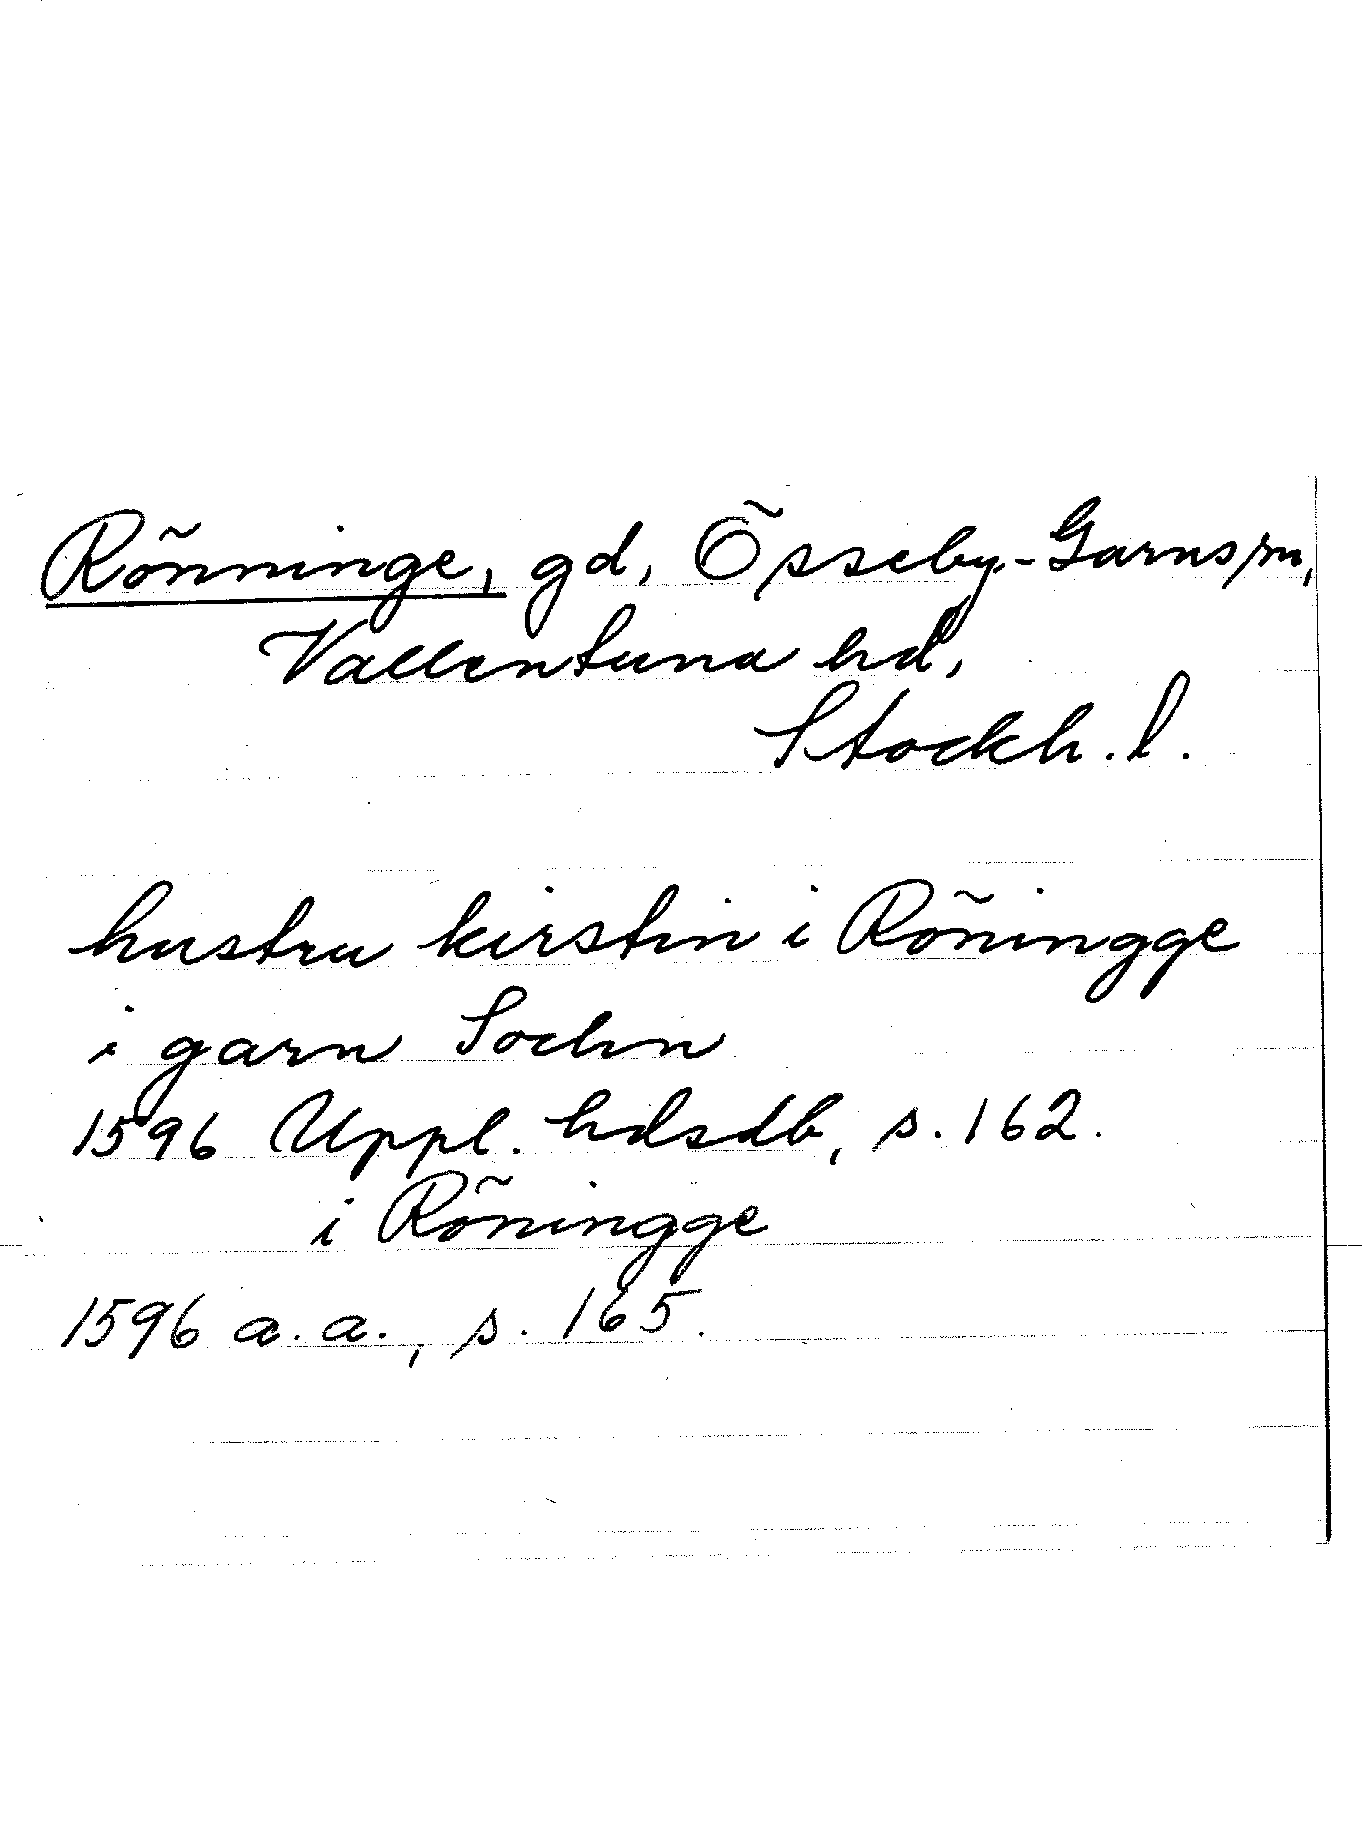 Rönninge, gd, Össeby-Garns sn,
Vallentuna hd,
Stockh. l.
hustru kirstin i Röningge
i garn Sochn
1596 Uppl. hdsdb, s. 162.
i Röningge
1596 a. a., s. 165.